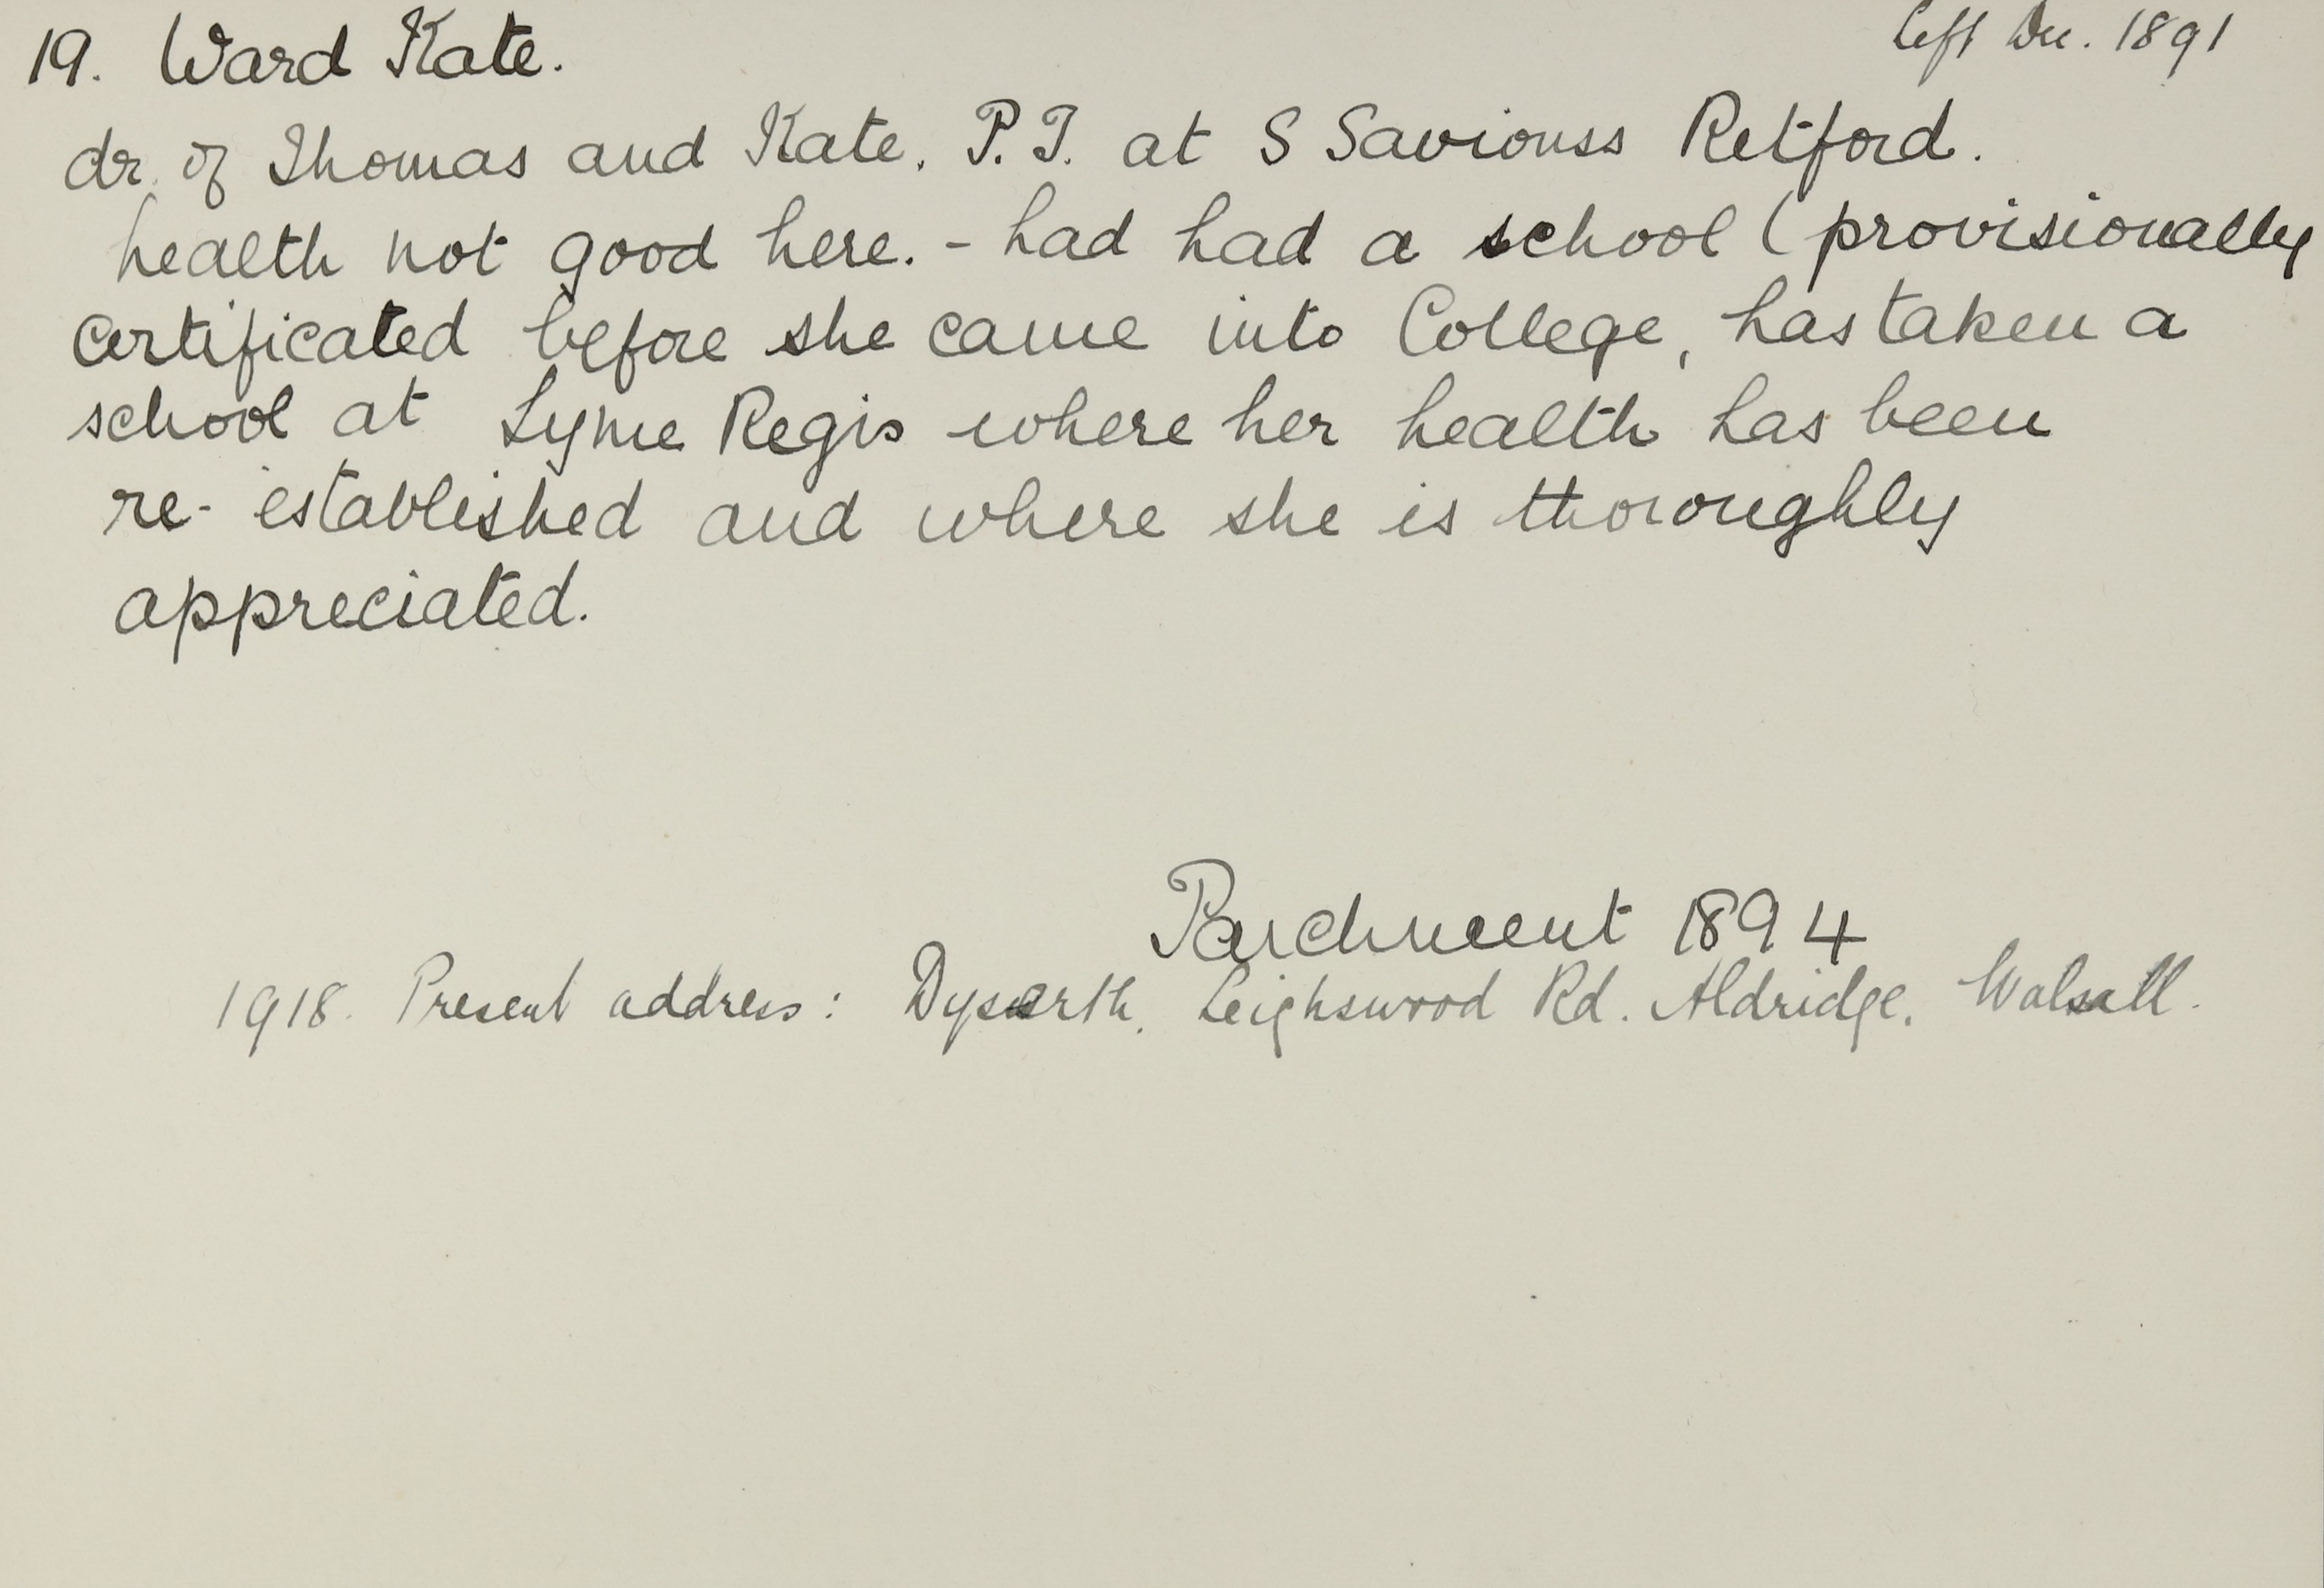 19. Ward Kate. left Dec. 1891
dr. of Thomas and Kate. P.T. at S Saviours Retford.
health not good here. - had had a school (provisionally
certificated before she came into College, has taken a
school at Lyme Regis where her health has been
re-established and where she is thoroughly
appreciated.
Parchment 1894
1918. Present address: Dyserth, Leighswood Rd. Aldridge. Walsall.